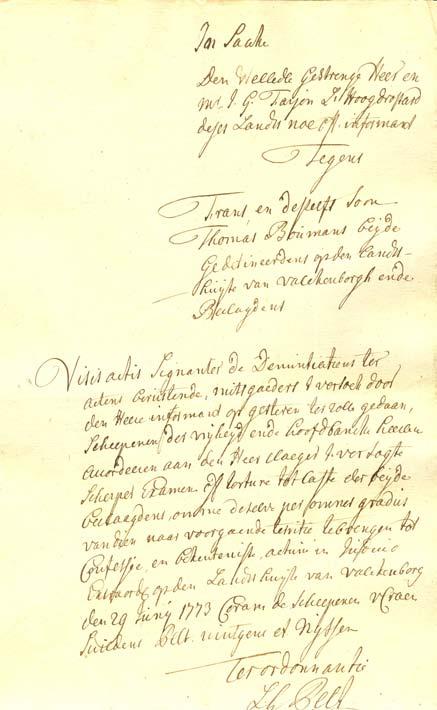 In Saake
Den WelEdele Gestrenge Heer en
mr. J. G. Farjon Lt Hoogdrossard
deses Landts noe off. informant
Tegens
Frans, en desselfs Soon
Thomas Boumans beijde
Gedetineerdens op den Landts-
huijse van Valckenborgh ende
Beclagdens
Visis actis Signanter de Denuntiatiens ter
actens berustende, mitsgaeders t versoek door
den Heere informant op gisteren ter rolle gedaan,
Scheepenen des vrijheijt ende hooftbancke Heerlen
accordeeren aan den Heer claeger t versogte
Scherper Examen off torture tot laste der beijde
beclaagdens, omme deselve per omnes gradus
van dien naar voorgaende territie te brengen tot
Confessie, en bekentenisse, actum in Judicio
Extraord. op den Landtshuijse van Valckenborg
den 29 Junij 1773 Coram de Scheepenen
Pelt et Nijssen
Ter ordonnantie
Pelt